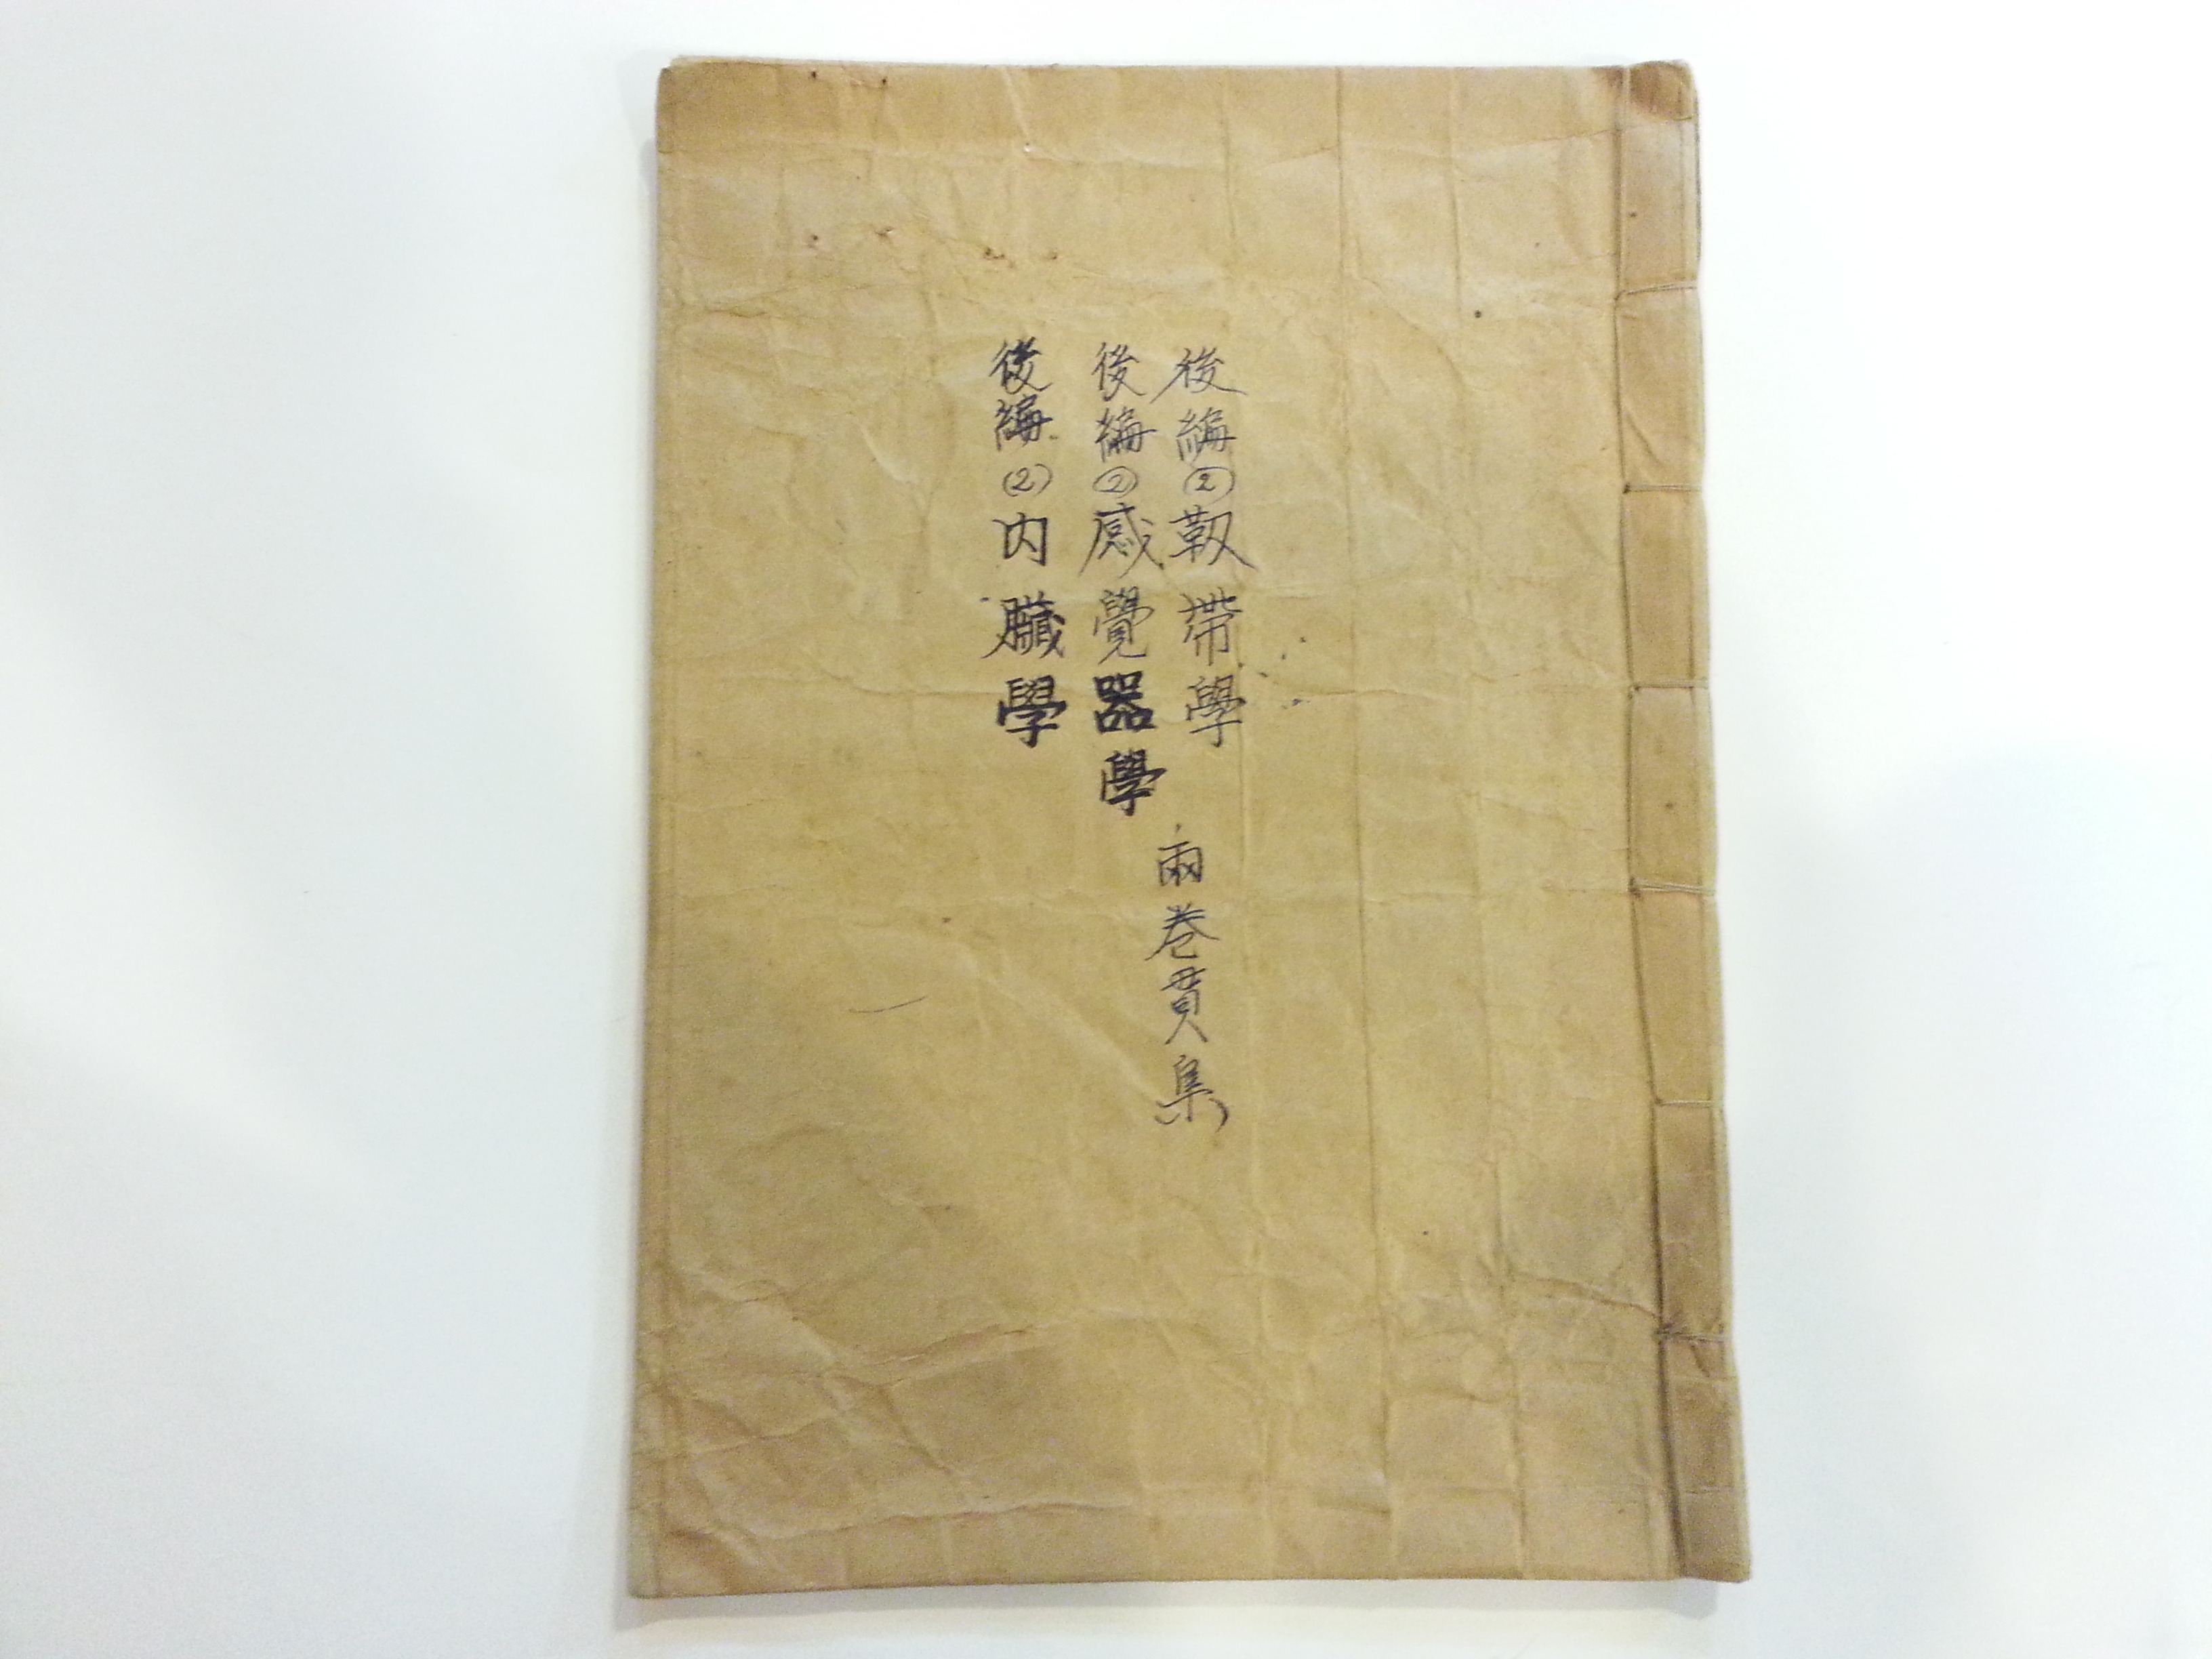 後編(2)靱帶學
後編(2)感覺器學
後編(2)內臟學
兩卷貫集